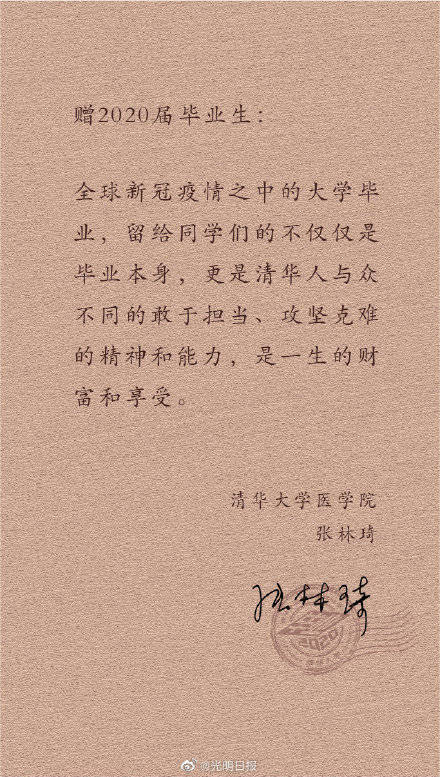 赠2020届毕业生：
全球新冠疫情之中的大学毕
业，留给同学们的不仅仅是
毕业本身，更是清华人与众
不同的敢于担当、攻坚克难
的精神和能力，是一生的财
富和享受。
清华大学医学院
张林琦
张林琦
2020
@光明日报